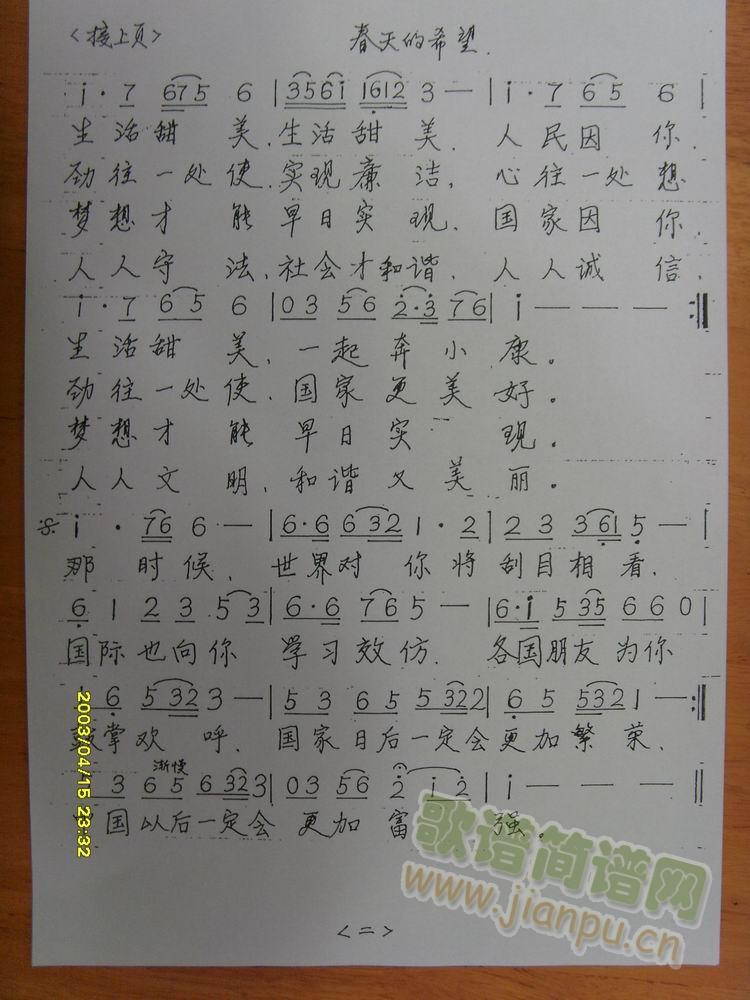 <接上页> 春天的希望.
i · 7 675 6 | 3561 1612 3 — | i · 7 65 6 |
生活甜 美,生活甜 美. 人民因 你.
劲往一处使,实现廉洁, 心往一处想
梦想才 能早日实 现. 国家因 你.
人人守 法,社会才和谐, 人人诚 信,
i · 7 65 6 | 03 56 2·3 76 | i — — — :||
生活甜 美, 一起奔小康。
劲往一处使, 国家更美好。
梦想才 能 早日实 现。
人人文 明, 和谐又美丽。
i · 76 6 — | 6·6 632 1·2 | 2 3 361 5 — |
那 时候, 世界对 你将刮目相看,
6 1 2 3 5 3 | 6·6 765 5 — | 6·i 535 660 |
国际也向你 学习效仿. 各国朋友为你
6 5 32 3 — | 5 3 6 5 5 322 | 6 5 532 1 — :||
鼓掌欢 呼. 国家日后一定会更加繁 荣.
渐慢
3 6 5 6 32 3 | 03 56 2 i 2 | i — — — ||
国以后一定会 更加富 强。
<二>
2003/04/15 23:32
歌谱简谱网
www.jianpu.cn